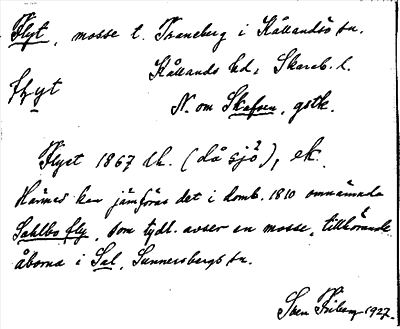 Flyt, mosse t. Traneberg i Kållandsö sn.
Kållands hd, Skarab. l.
flyt
N. om Skafsen, gstk.
Flyet 1867 Ek. (då sjö), ek.
Härmed kan jämföras det i domb. 1810 omnämnda
Sahlbo fly, som tydl. avser en mosse, tillhörande
åborna i Sal, Sunnersbergs sn.
Sven Friberg 1927.